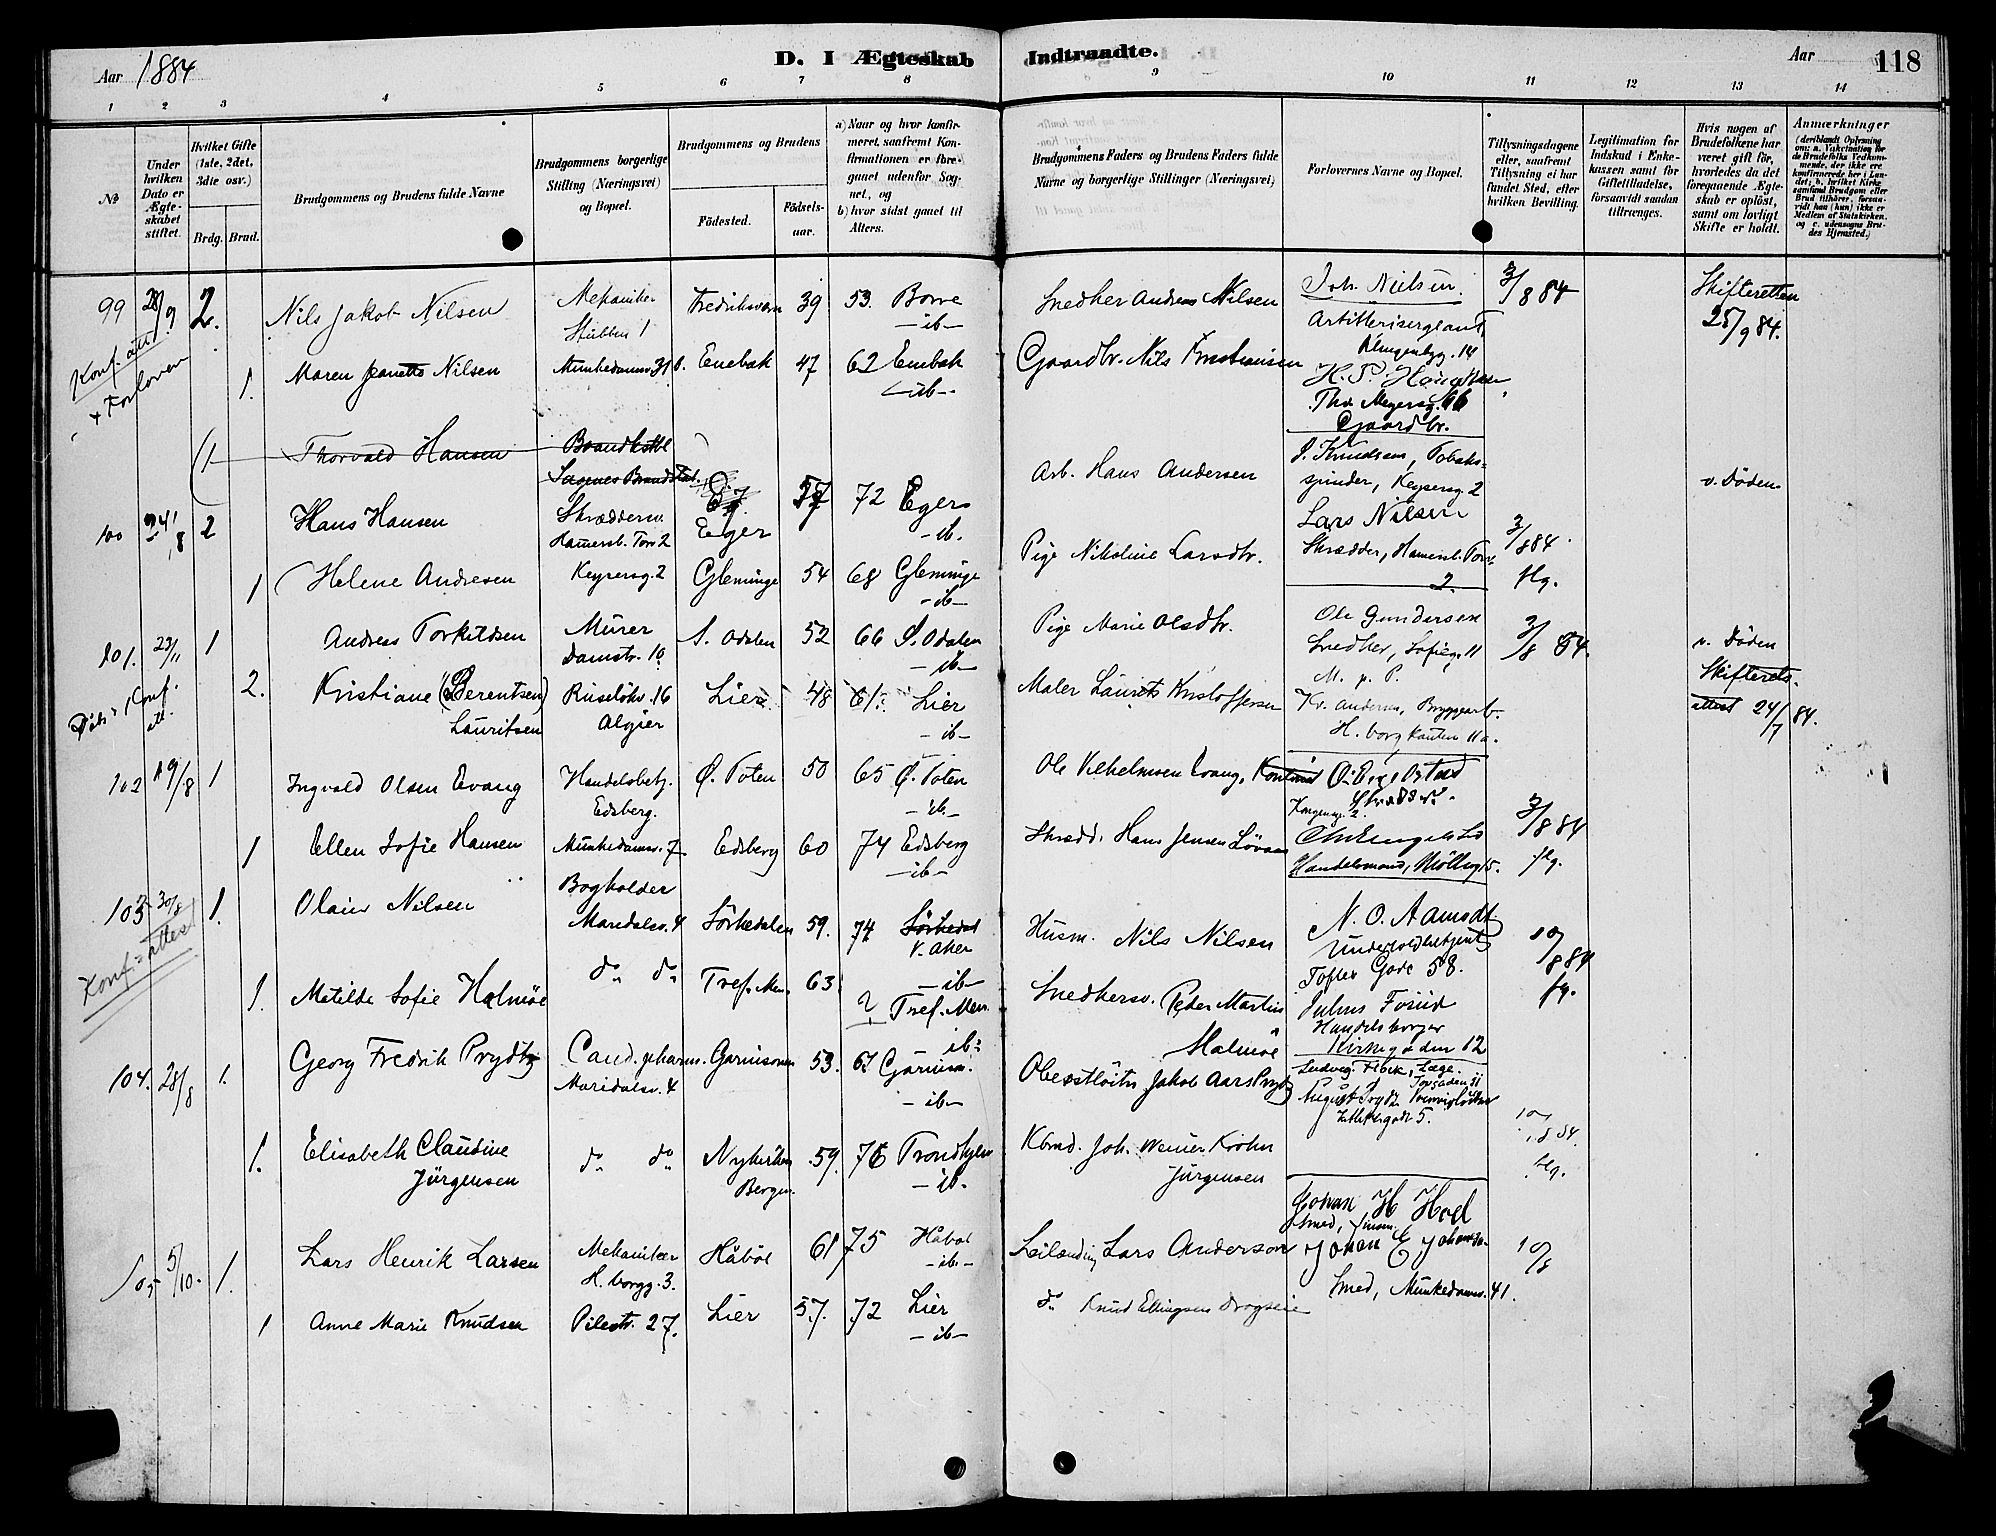 Aar 1884
D. I Ægteskab Indtraadte.
Aar
118
1 2 3 4 5 6 7 8 9 10 11 12 13 14
№
Under hvilken Dato er Ægteskabet stiftet.
Hvilket Gifte (1ste, 2det, 3die osv.)
Brdg. Brud.
Brudgommens og Brudens fulde Navne
Brudgommens borgerlige Stilling (Næringsvei) og Bopæl.
Brudgommens og Brudens
Födested.
Födselsaar.
a) Naar og hvor konfirmeret, saafremt Konfirmationen er foregaaet udenfor Sognet, og
b) hvor sidst gaaet til Alters.
Brudgommens Faders og Brudens Faders fulde Navne og borgerlige Stillinger (Næringsvei)
Forlovernes Navne og Bopæl.
Tillysningsdagene eller, saafremt Tillysning ei har fundet Sted, efter hvilken Bevilling.
Legitimation for Indskud i Enkekassen samt for Giftetilladelse, forsaavidt saadan tiltrænges.
Hvis nogen af Brudefolkene har været gift för, hvorledes da det foregaaende Ægteskab er oplöst, samt om lovligt Skifte er holdt.
Anmærkninger
(deriblandt Oplysning om: a. Vakcination for de Brudefolks Vedkommende, der ikke ere konfirmerede her i Landet; b. hvilket Kirkesamfund Brudgom eller Brud tilhörer, forsaavidt han (hun) ikke er Medlem af Statskirken, og c. udensogns Brudes Hjemsted.)
99 28/9 2. Nils Jakob Nilsen Mekaniker Stubben 1 Fredriksværn 39 53. Borre
—ib—
Snedker Andreas Nilsen Joh. Nielsen. 3/8 84 Skifteretten 25/9 84.
Artillerisergeant
Klingenbgg. 14
Konf. att.
+ Forlover
1. Maren Jeanette Nilsen Munkedamsv. 31 b. Enebak 47 62 Enebak
—ib—
Gaardbr. Nils Kristiansen
Thv. Meyersg. 66
Gaardbr.
1 Thorvald Hansen Brandkstbl
Sagenes Brandstat.
100 24/8 2 Hans Hansen Skræddersv. Hamersb. Torv 2 Eger 57 72 Egers
—ib.
Arb. Hans Andersen J. Knudsen, Tobaksspinder, Keysersg. 2 v. Döden
Lars Nilsen
Skrædder, Hamersb. Torv 2. 3/8 84. flg.
1 Helene Andresen Keysersg. 2 Glemminge 54 68 Glemminge
—ib—
Pige Nikoline Larsdtr.
101. 23/11 1 Andreas Torkildsen Murer Damstr. 10 S. Odalen 52 66 S. Odalen
—ib—
Pige Marie Olsdtr. Ole Gundersen
Snedker, Sofieg. 11 3/8 84. v. Döden
M. p. P.
2. Kristiane (Berentsen) Lauritsen Ruselökv. 16 Algier Lier 48 61. Lier
—ib—
Maler Laurits Kristoffersen Kr. Andersen, Bryggearb.
H. borg kanten 11a. Skifterets-
attest 24/7 84.
Konf. att.
102 19/8 1 Ingvald Olsen Evang Handelsbetj. Edsberg. Ø. Toten 50 65 Ø. Toten
—ib—
Ole Vilhelmsen Evang,
Kongensg. 2.
1 Ellen Sofie Hansen Munkedamsv. 7 Edsberg 60 74 Edsberg
—ib—
Skrædd. Hans Jensen
Handelsmand, Möllerg 15. 3/8 84 flg.
103 30/8 1. Olaus Nilsen Bogholder Maridalsv. 4 Sörkedalen 59. 74 Sörkedal
V. Aker
—ib—
Husm. Nils Nilsen N. O. Aamodt
Toftes Gade 58. 10/8 84 flg.
Konf=attest
1. Matilde Sofie Halmöe do do Tref. Men. 63 ? Tref. Men.
ib
Snedkersv. Peder Martin Halmöe Julius Fosud
Handelsborger
Kirkegaden 12
104. 28/8 1. Georg Fredrik Prydtz Cand. pharm. Maridalsv. 4 Garnisonen 53. 67 Garnison.
—ib—
Oberstlöitn Jakob Aars Prydtz Ludvig Fibek, Læge.
Torgaden 11
August Prydtz Premierlöitnt
5. 10/8 84. flg.
1. Elisabeth Claudine Jürgensen do do Nykirken Bergen. 59. 76 Trondhjem
—ib.
Kbmd. Joh. Werner Krohn Jürgensen
105 5/10. 1. Lars Henrik Larsen Mekaniker H. borgg. 3. Håböl 61 75 Håböl
—ib—
Leilænding Lars Anderson Johan H Hoel
Smed,
Johan E Johansen
Smed, Munkedamsv. 41. 10/8
1 Anne Marie Knudsen Pilestr. 27. Lier 57. 72 Lier
—ib—
do Knud Ellingsen Drogseie